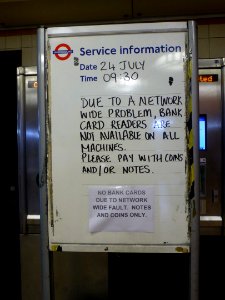 Service information
Date 24 JULY
Time 09:30
DUE TO A NETWORK
WIDE PROBLEM, BANK
CARD READERS ARE
NOT AVAILABLE ON ALL
MACHINES.
PLEASE PAY WITH COINS
AND/OR NOTES.
NO BANK CARDS
DUE TO NETWORK
WIDE FAULT. NOTES
AND COINS ONLY.